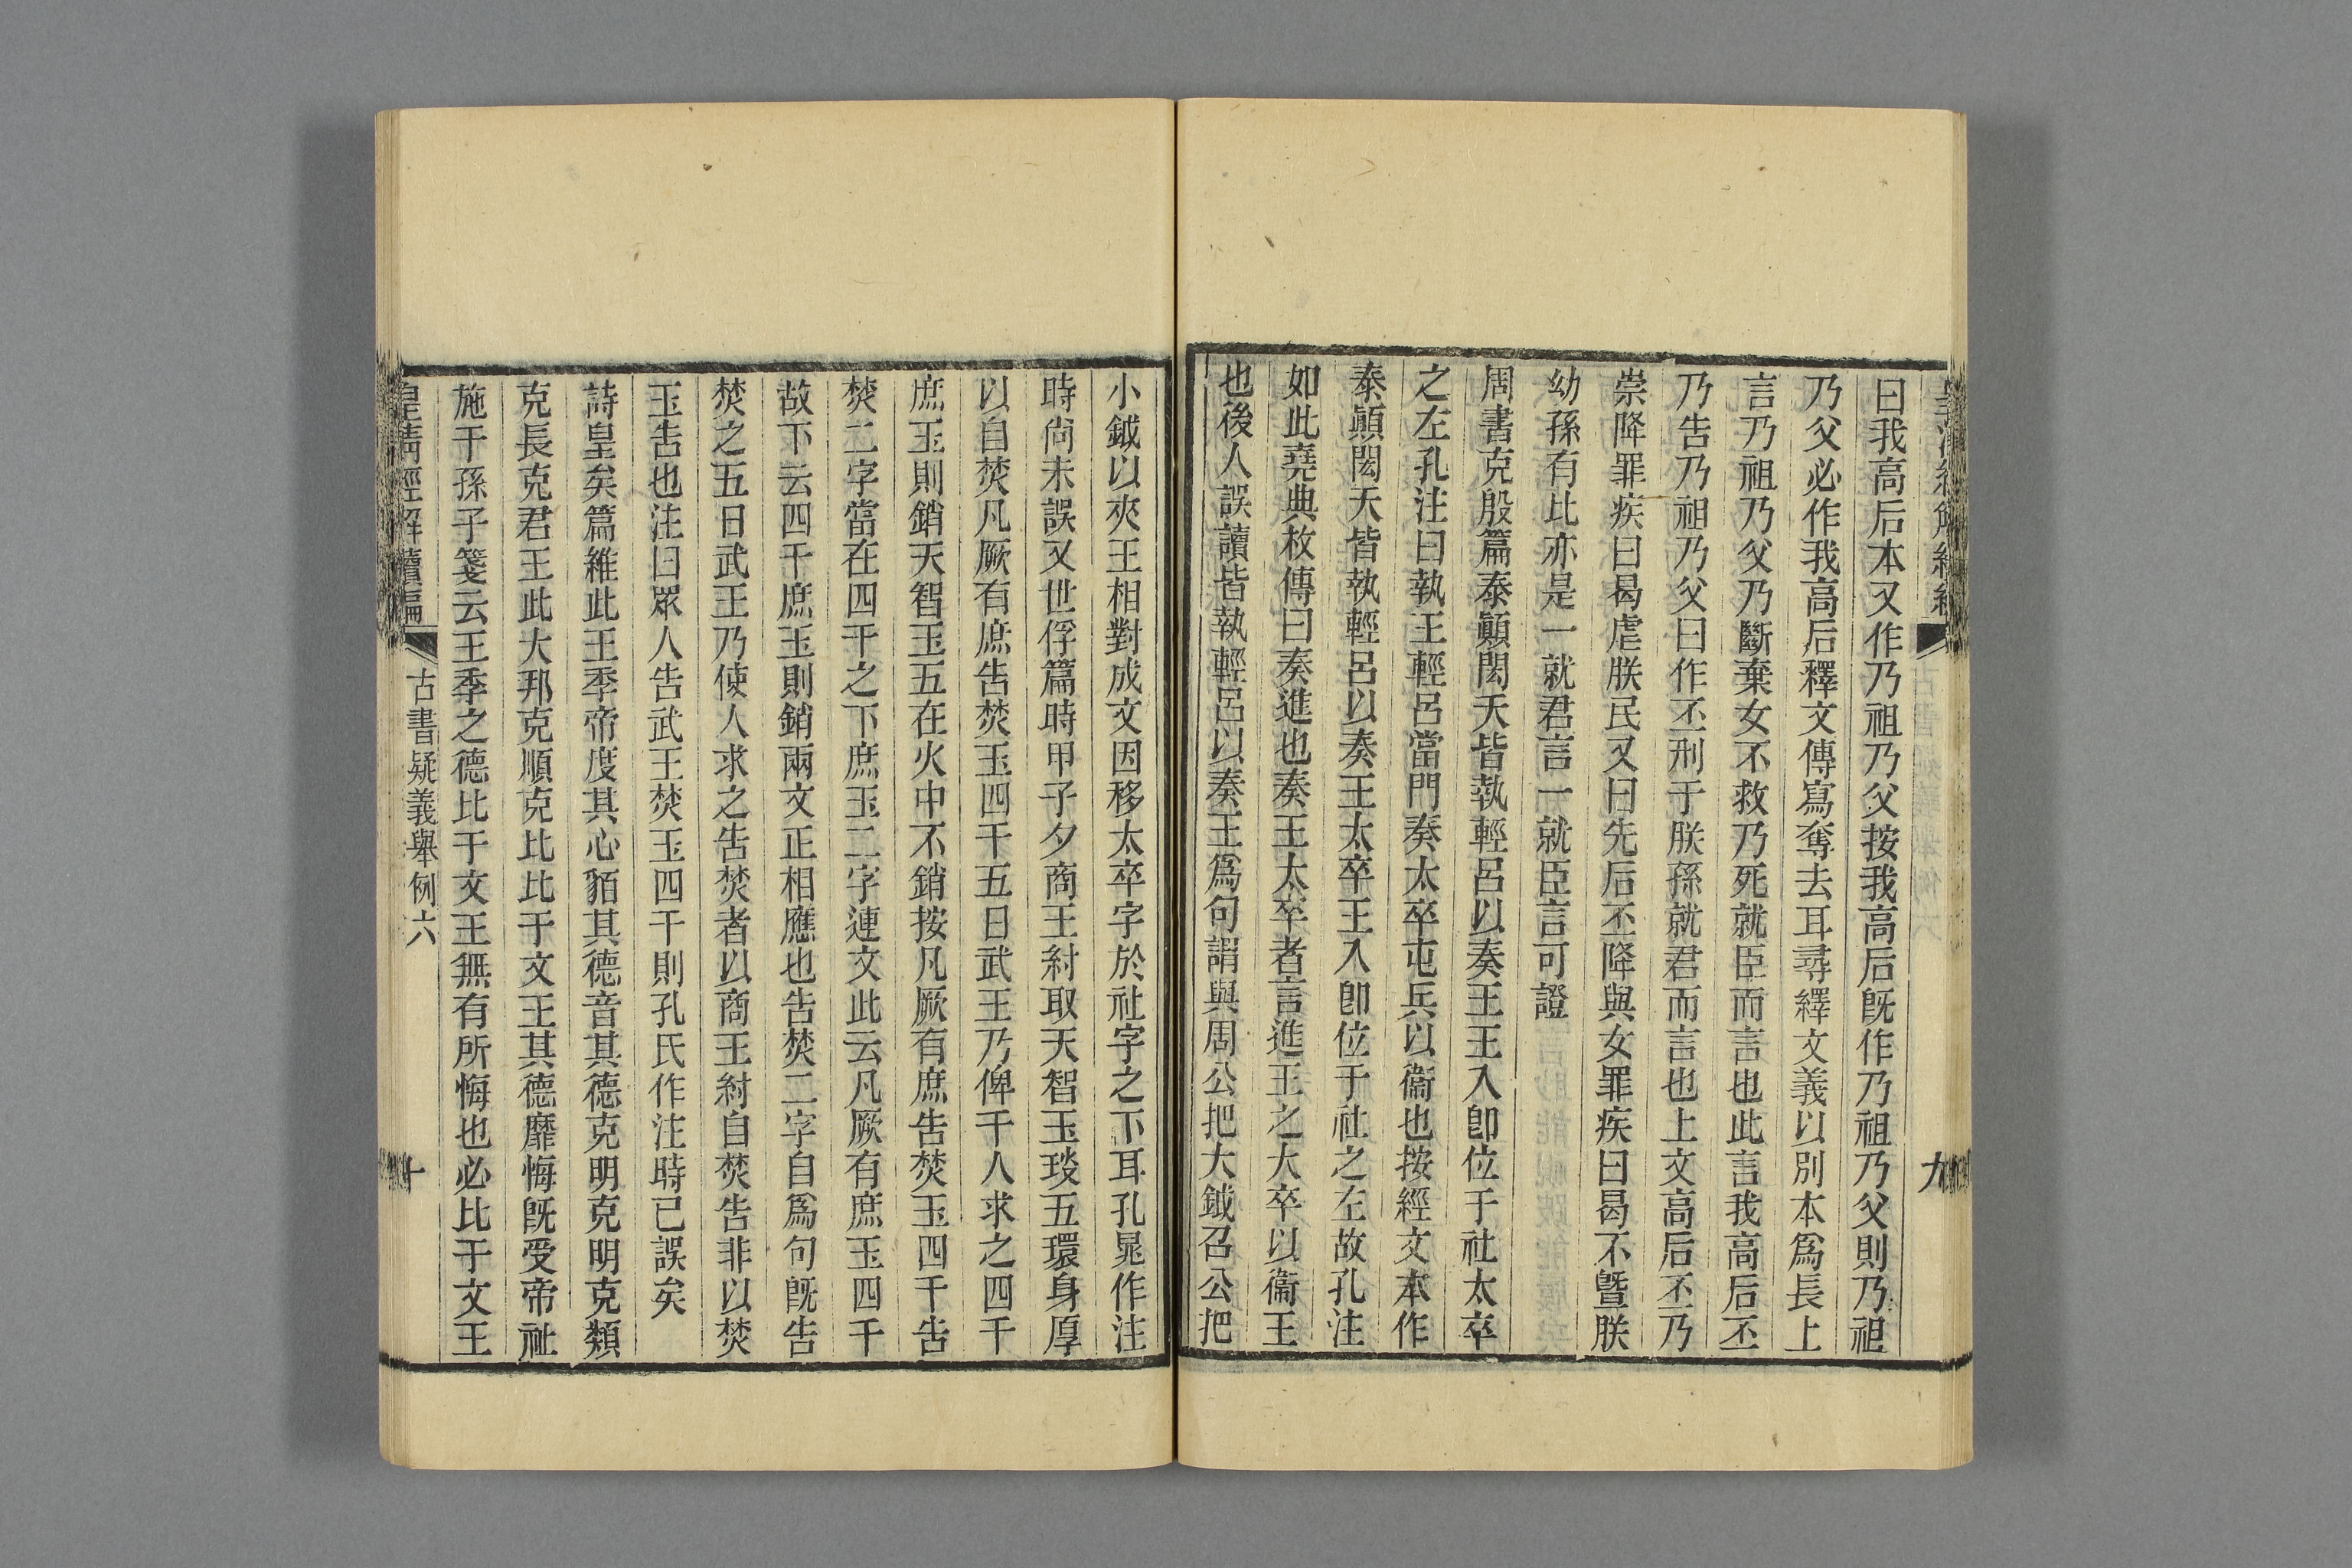 曰我高后本又作乃祖乃父按我高后旣作乃祖乃父則乃祖
乃父必作我高后釋文傳寫奪去耳尋繹文義以別本爲長上
言乃祖乃父乃斷棄女不救乃死就臣而言也此言我高后丕
乃告乃祖乃父曰作丕刑于朕孫就君而言也上文高后丕乃
崇降罪疾曰曷虐朕民又曰先后丕降與女罪疾曰曷不曁朕
幼孫有比亦是一就君言一就臣言可證
周書克殷篇泰顚閎夭皆執輕呂以奏王王入卽位于社太卒
之左孔注曰執王輕呂當門奏太卒屯兵以衞也按經文本作
泰顚閎夭皆執輕呂以奏王太卒王入卽位于社之左故孔注
如此堯典枚傳曰奏進也奏王太卒者言進王之大卒以衞王
也後人誤讀皆執輕呂以奏王爲句謂與周公把大鉞召公把
小鉞以夾王相對成文因移太卒字於社字之下耳孔晁作注
時尚未誤又世俘篇時甲子夕商王紂取天智玉琰五環身厚
以自焚凡厥有庶告焚玉四千五日武王乃俾千人求之四千
庶玉則銷天智玉五在火中不銷按凡厥有庶告焚玉四千告
焚二字當在四千之下庶玉二字連文此云凡厥有庶玉四千
故下云四千庶玉則銷兩文正相應也告焚二字自爲句旣告
焚之五日武王乃使人求之告焚者以商王紂自焚告非以焚
玉告也注曰眾人告武王焚玉四千則孔氏作注時已誤矣
詩皇矣篇維此王季帝度其心貊其德音其德克明克明克類
克長克君王此大邦克順克比比于文王其德靡悔旣受帝祉
施于孫子箋云王季之德比于文王無有所悔也必比于文王
皇清經解續編
古書疑義舉例六
十
九